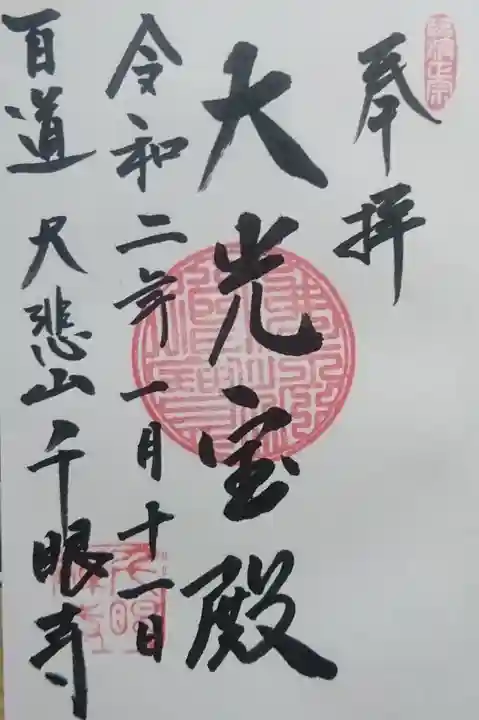 奉拝
大光宝殿
令和二年一月十一日
百道 大悲山千眼寺